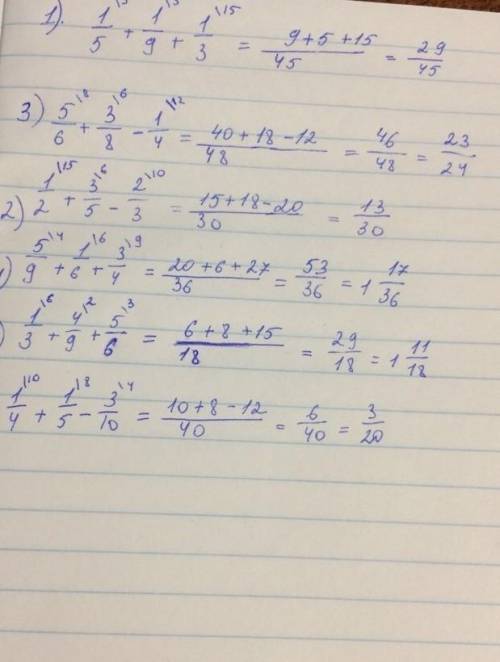 1). 1/5 + 1/9 \15 + 1/3 \15 = (9+5+15)/45 = 29/45
3) 5/6 \8 + 3/8 \6 - 1/4 \12 = (40+18-12)/48 = 46/48 = 23/24
2) 1/2 \15 + 3/5 \6 - 2/3 \10 = (15+18-20)/30 = 13/30
) 5/9 \4 + 1/6 \6 + 3/4 \9 = (20+6+27)/36 = 53/36 = 1 17/36
) 1/3 \6 + 4/9 \2 + 5/6 \3 = (6+8+15)/18 = 29/18 = 1 11/18
1/4 \10 + 1/5 \8 - 3/10 \4 = (10+8-12)/40 = 6/40 = 3/20